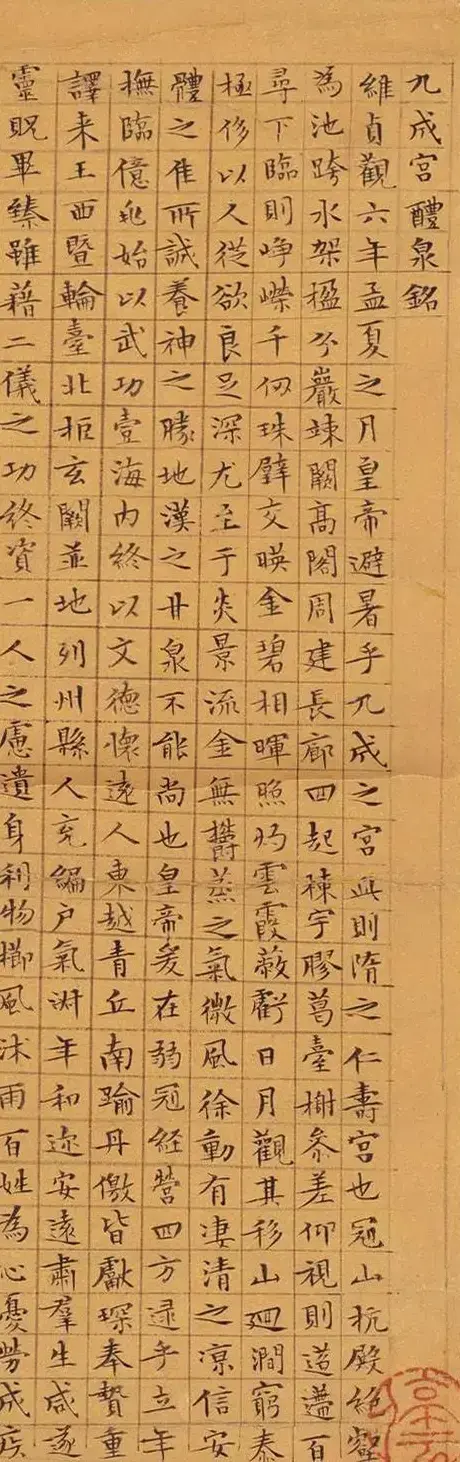 九成宮醴泉銘
維貞觀六年孟夏之月皇帝避暑乎九成之宮此則隋之仁壽宮也冠山抗殿絕壑
為池跨水架楹分巖竦闕高閣周建長廊四起棟宇膠葛臺榭參差仰視則迢遰百
尋下臨則崢嶸千仞珠璧交暎金碧相暉照灼雲霞蔽虧日月觀其移山廻澗窮泰
極侈以人從欲良足深尤至于炎景流金無欝蒸之氣微風徐動有凄清之凉信安
體之佳所誠養神之勝地漢之甘泉不能尚也皇帝爰在弱冠經營四方逮乎立年
撫臨億兆始以武功壹海內終以文德懷遠人東越青丘南踰丹儌皆獻琛奉贄重
譯来王西暨輪臺北拒玄闕並地列州縣人充編戶氣淑年和迩安遠肅羣生咸遂
靈貺畢臻雖藉二儀之功終資一人之慮遺身利物櫛風沐雨百姓為心憂勞成疾